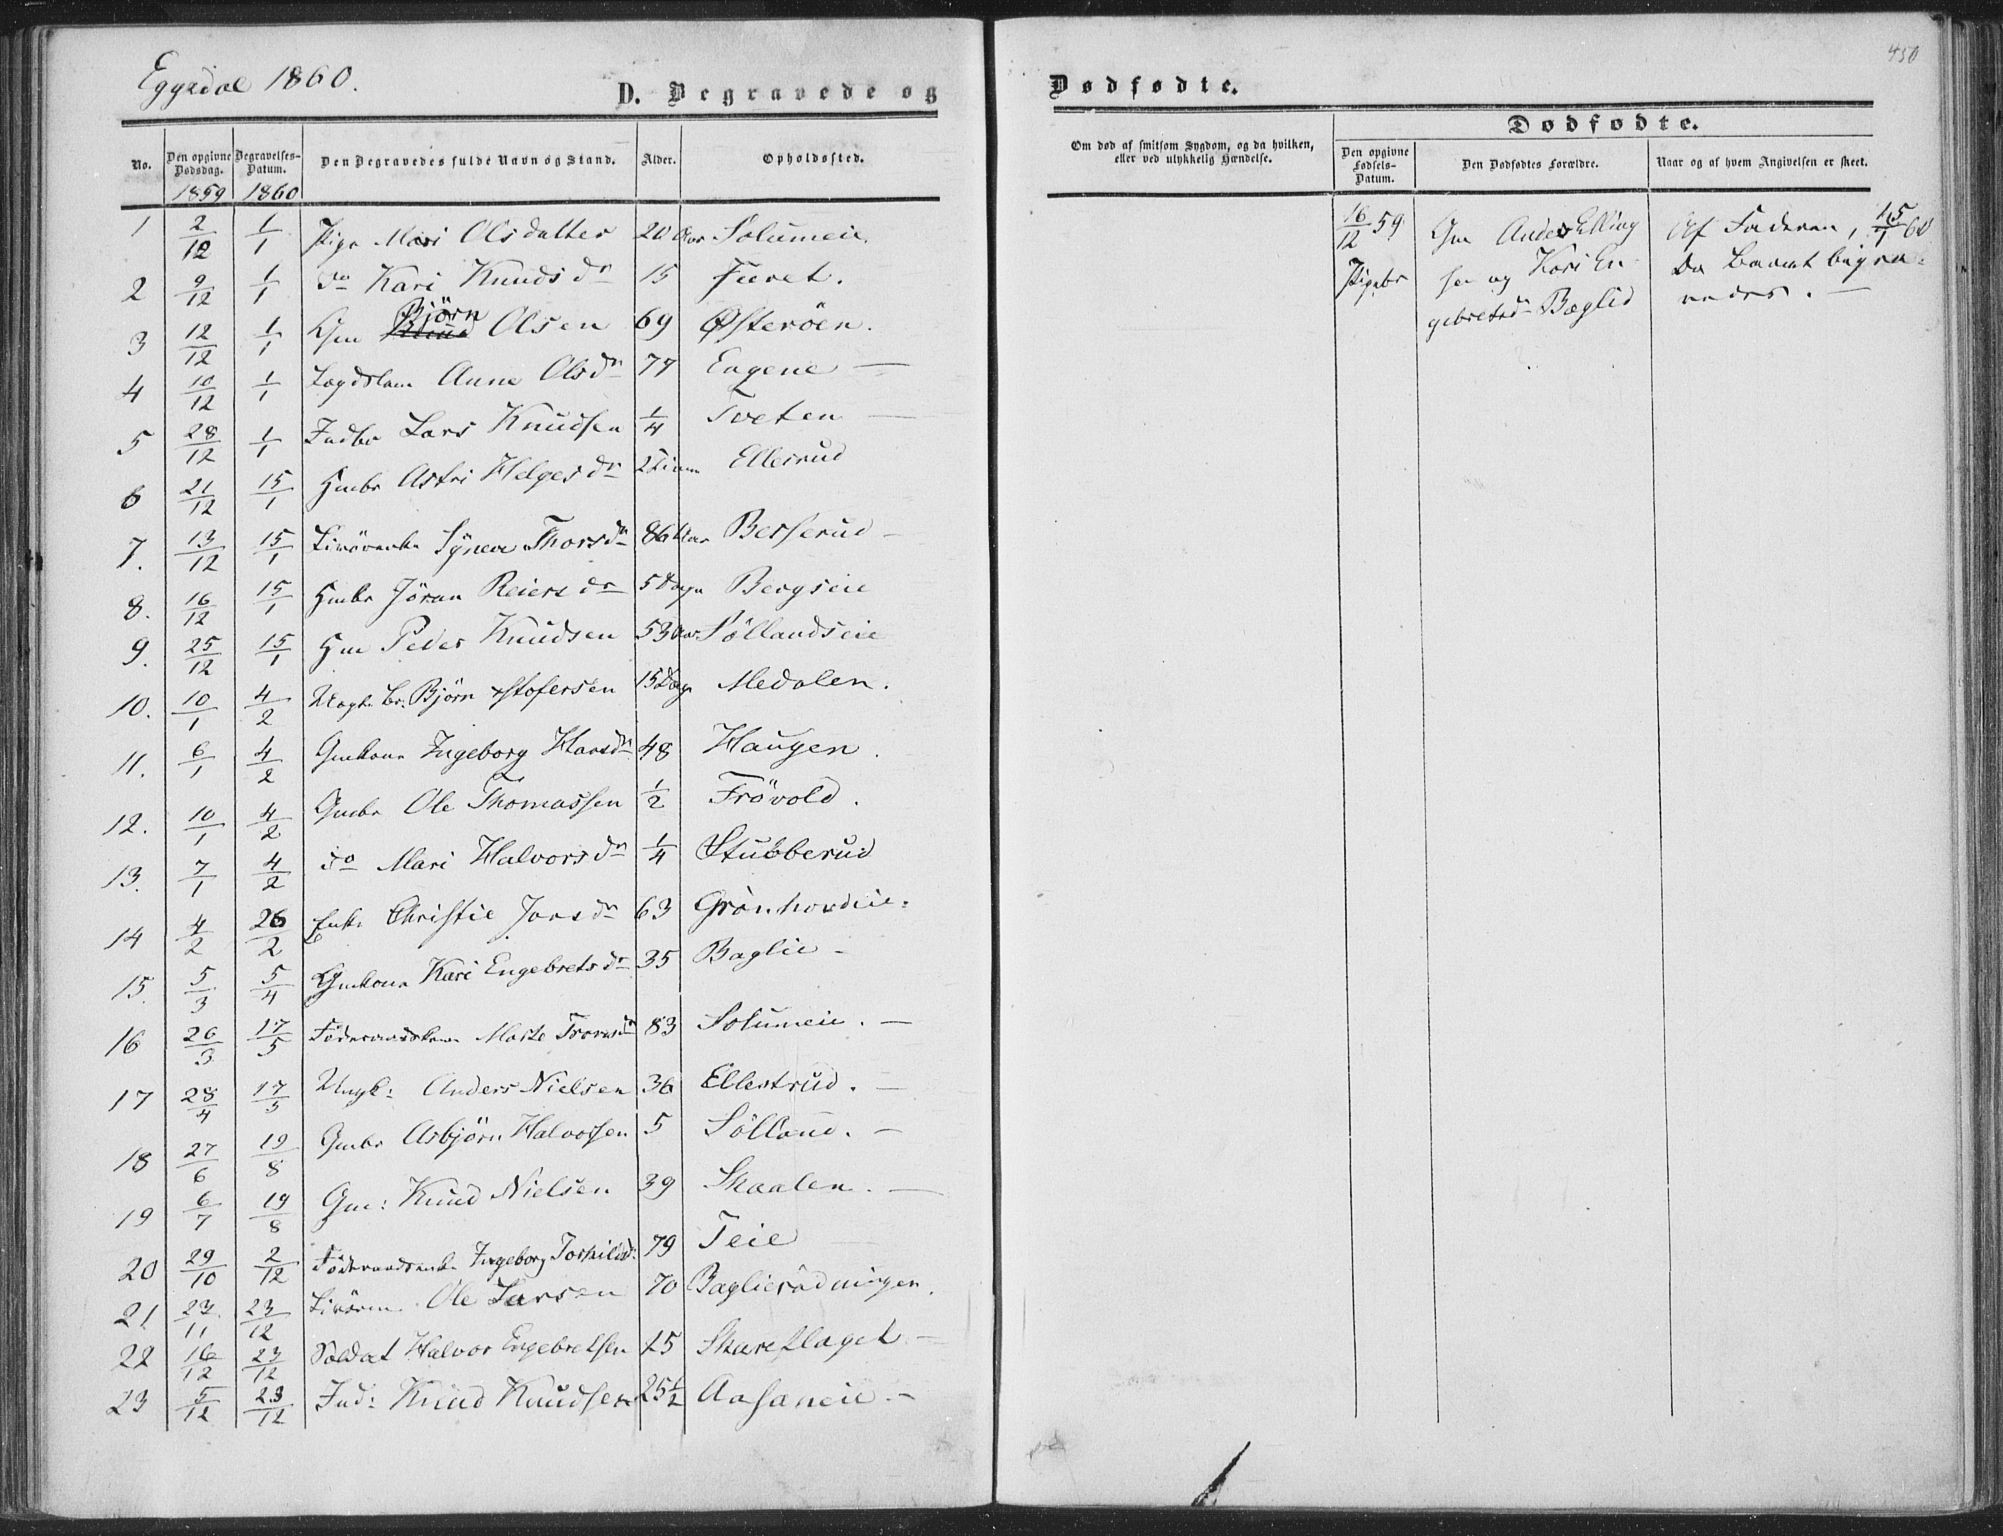 Eggedal 1860.
D. Begravede og
No. Den opgivne Dødsdag. Begravelses-Datum. Den Begravedes fulde Navn og Stand. Alder. Opholdssted.
1859 1860
1 2/12 1/1 Pige Mari Olsdatter 20 Aar Solumeie.
2 9/12 1/1 do Kari Knudsdr 15 Furet.
3 12/12 1/1 Gm Bjørn Olsen 69 Østerøen.
4 10/12 1/1 Lægdslem Anne Olsdr 77 Engene —
5 28/12 1/1 Indbr Lars Knudsen 1/4 Tveten —
6 21/12 15/1 Hmbr Astri Helgesdr 2 Timer Ellesrud
7. 13/12 15/1 Livørenke Syneve Thorsdr 86 Aar Berserud —
8. 16/12 15/1 Hmbr Jöran Reiersdr 5 Dage Bergseie
9. 25/12 15/1 Hm Peder Knudsen 53 Aar Söllandseie
10. 10/1 4/2 Uægte br. Björn Kstofersen 15 Dage Medalen.
11. 6/1 4/2 Gmkone Ingeborg Hansdr 48 Haugen.
12. 10/1 4/2 Gmbr Ole Thomassen 1/2 Frövold.
13. 7/1 4/2 do Mari Halvorsdr 1/4 Stubberud
14 4/2 26/2 Enke Christie Jonsdr 63 Grönhovdeie.
15. 5/3 5/4 Gmkone Kari Engebretsdr 35 Baglie —
16 26/3 17/5 Föderaadskone 83 Solumeie. —
17 28/4 17/5 Ungk: Anders Nielsen 36 Ellestrud. —
18 27/6 19/8 Gmbr Asbjörn Halvorsen 5 Sölland. —
19 6/7 19/8 Gm: Knud Nielsen 39 Skaalen. —
20 29/10 2/12 Föderaadsenke Ingeborg Torkilsd: 79 Teie
21 23/11 23/12 Livörm. Ole Larsen 70 Baglierudningen.
22 16/12 23/12 Soldat Halvor Engebretsen 25 Skareflaget —
23 5/12 23/12 Ind: Knud Knudsen 25 1/2 Aasaneie —
450
Dødfødte.
Om død af smitsom Sygdom, og da hvilken, eller ved ulykkelig Hændelse.
Dødfødte.
Den opgivne Fødsels-Datum. Den Dødfødtes Forældre. Naar og af hvem Angivelsen er skeet.
16/12 59 Gm Anders Elling Af Faderen, 15/1 60
Pigebr sen og Kari En Da Barnet begra-
gebretsdr Bæglid vedes. —